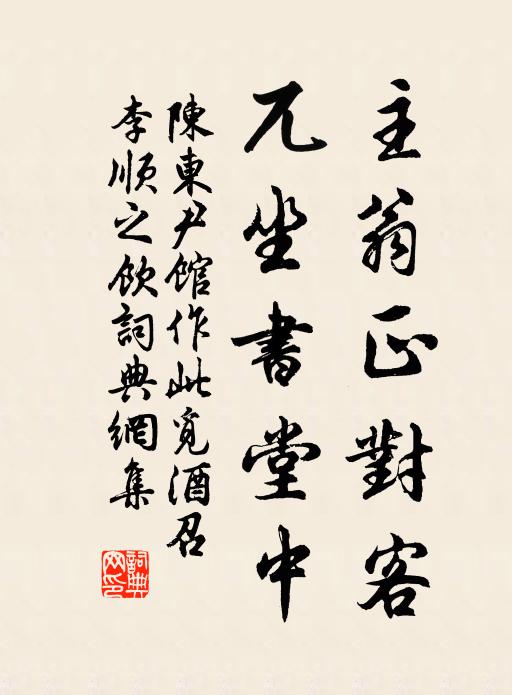 主翁正對客
兀坐書堂中
陳東尹館作此覓酒召
李順之飲詞典網集
詞典網印